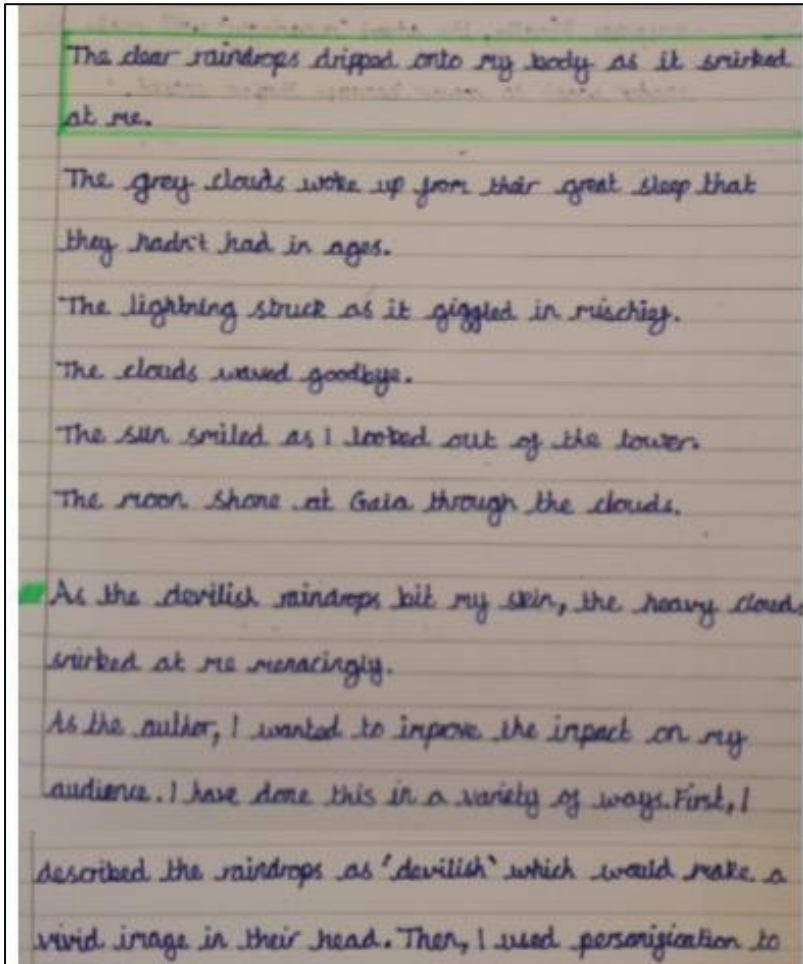 The clear raindrops dripped onto my body as it smirked
at me.
The grey clouds woke up from their great sleep that
they hadn't had in ages.
The lightning struck as it giggled in mischief.
The clouds waved goodbye.
The sun smiled as I looked out of the tower.
The moon shone at Gaia through the clouds.
As the devilish raindrops bit my skin, the heavy clouds
smirked at me menacingly.
As the author, I wanted to improve the impact on my
audience. I have done this in a variety of ways. First, I
described the raindrops as 'devilish' which would make a
vivid image in their head. Then, I used personification to